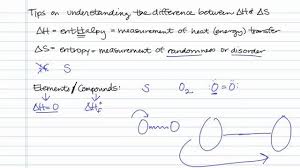 Tips on understanding the difference between ΔH & ΔS
ΔH = entHalpy = measurement of heat (energy) transfer
ΔS = entropy = measurement of randomness or disorder
S
Elements / Compounds: S O₂ Ö=Ö
ΔH=0 ΔHf°
O=O O—O